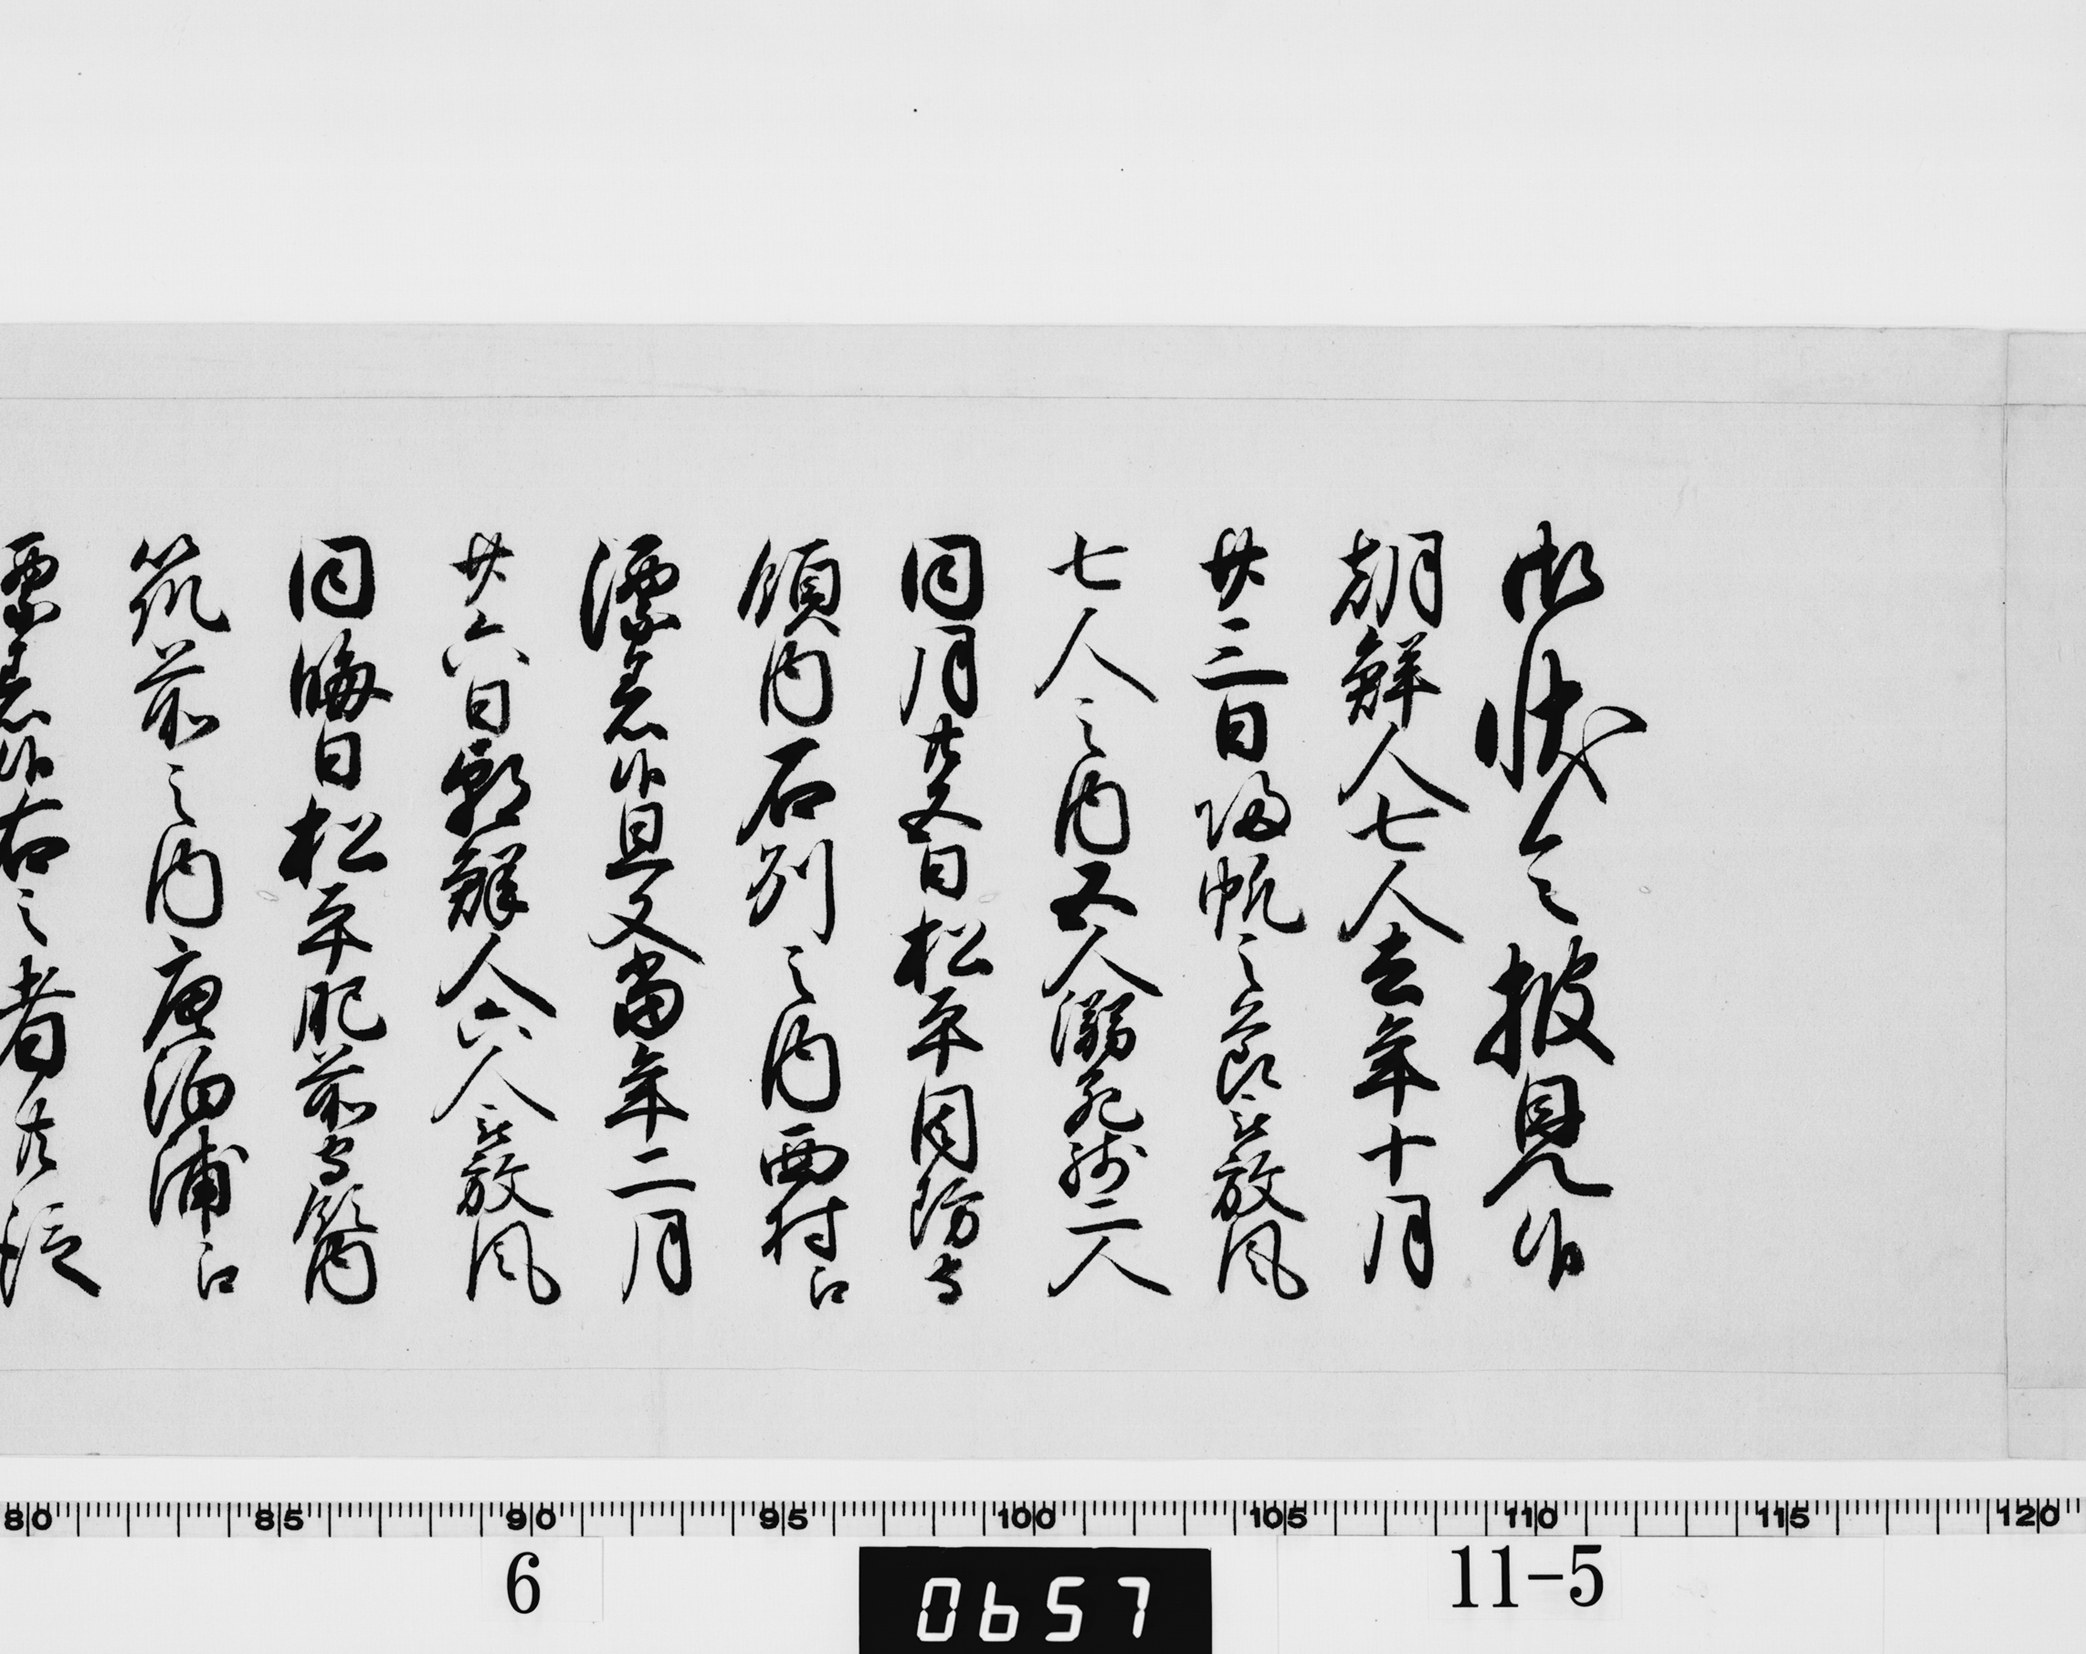 御状令披見候
朝鮮人七人去年十月
廿三日帰帆之節被放風
七人之内五人溺死残二人
同月廿五日松平周防守
領内石州之内西村江
漂着候且又当年二月
廿六日朝鮮人六人被放風
同晦日松平肥前守領内
筑前之内唐泊浦江
漂着候右之者共従
80 85 90 95 100 105 110 115 120
6
0657
11-5